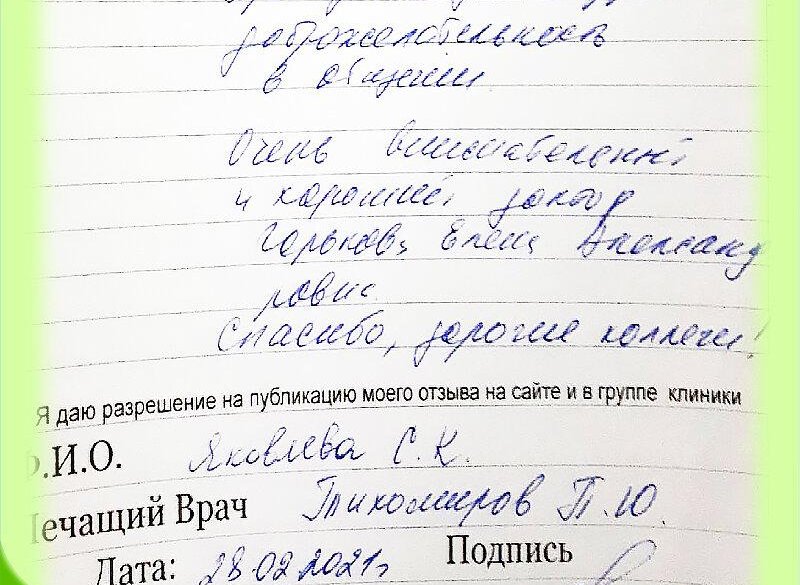 доброжелательность
в общении
Очень внимательный
и хороший доктор
Горькова Елена Александ
ровна
Спасибо, дорогие коллеги!
Я даю разрешение на публикацию моего отзыва на сайте и в группе клиники
Ф.И.О. Яковлева С.К.
Лечащий Врач Тихомиров П.Ю.
Дата: 28.02.2021г Подпись